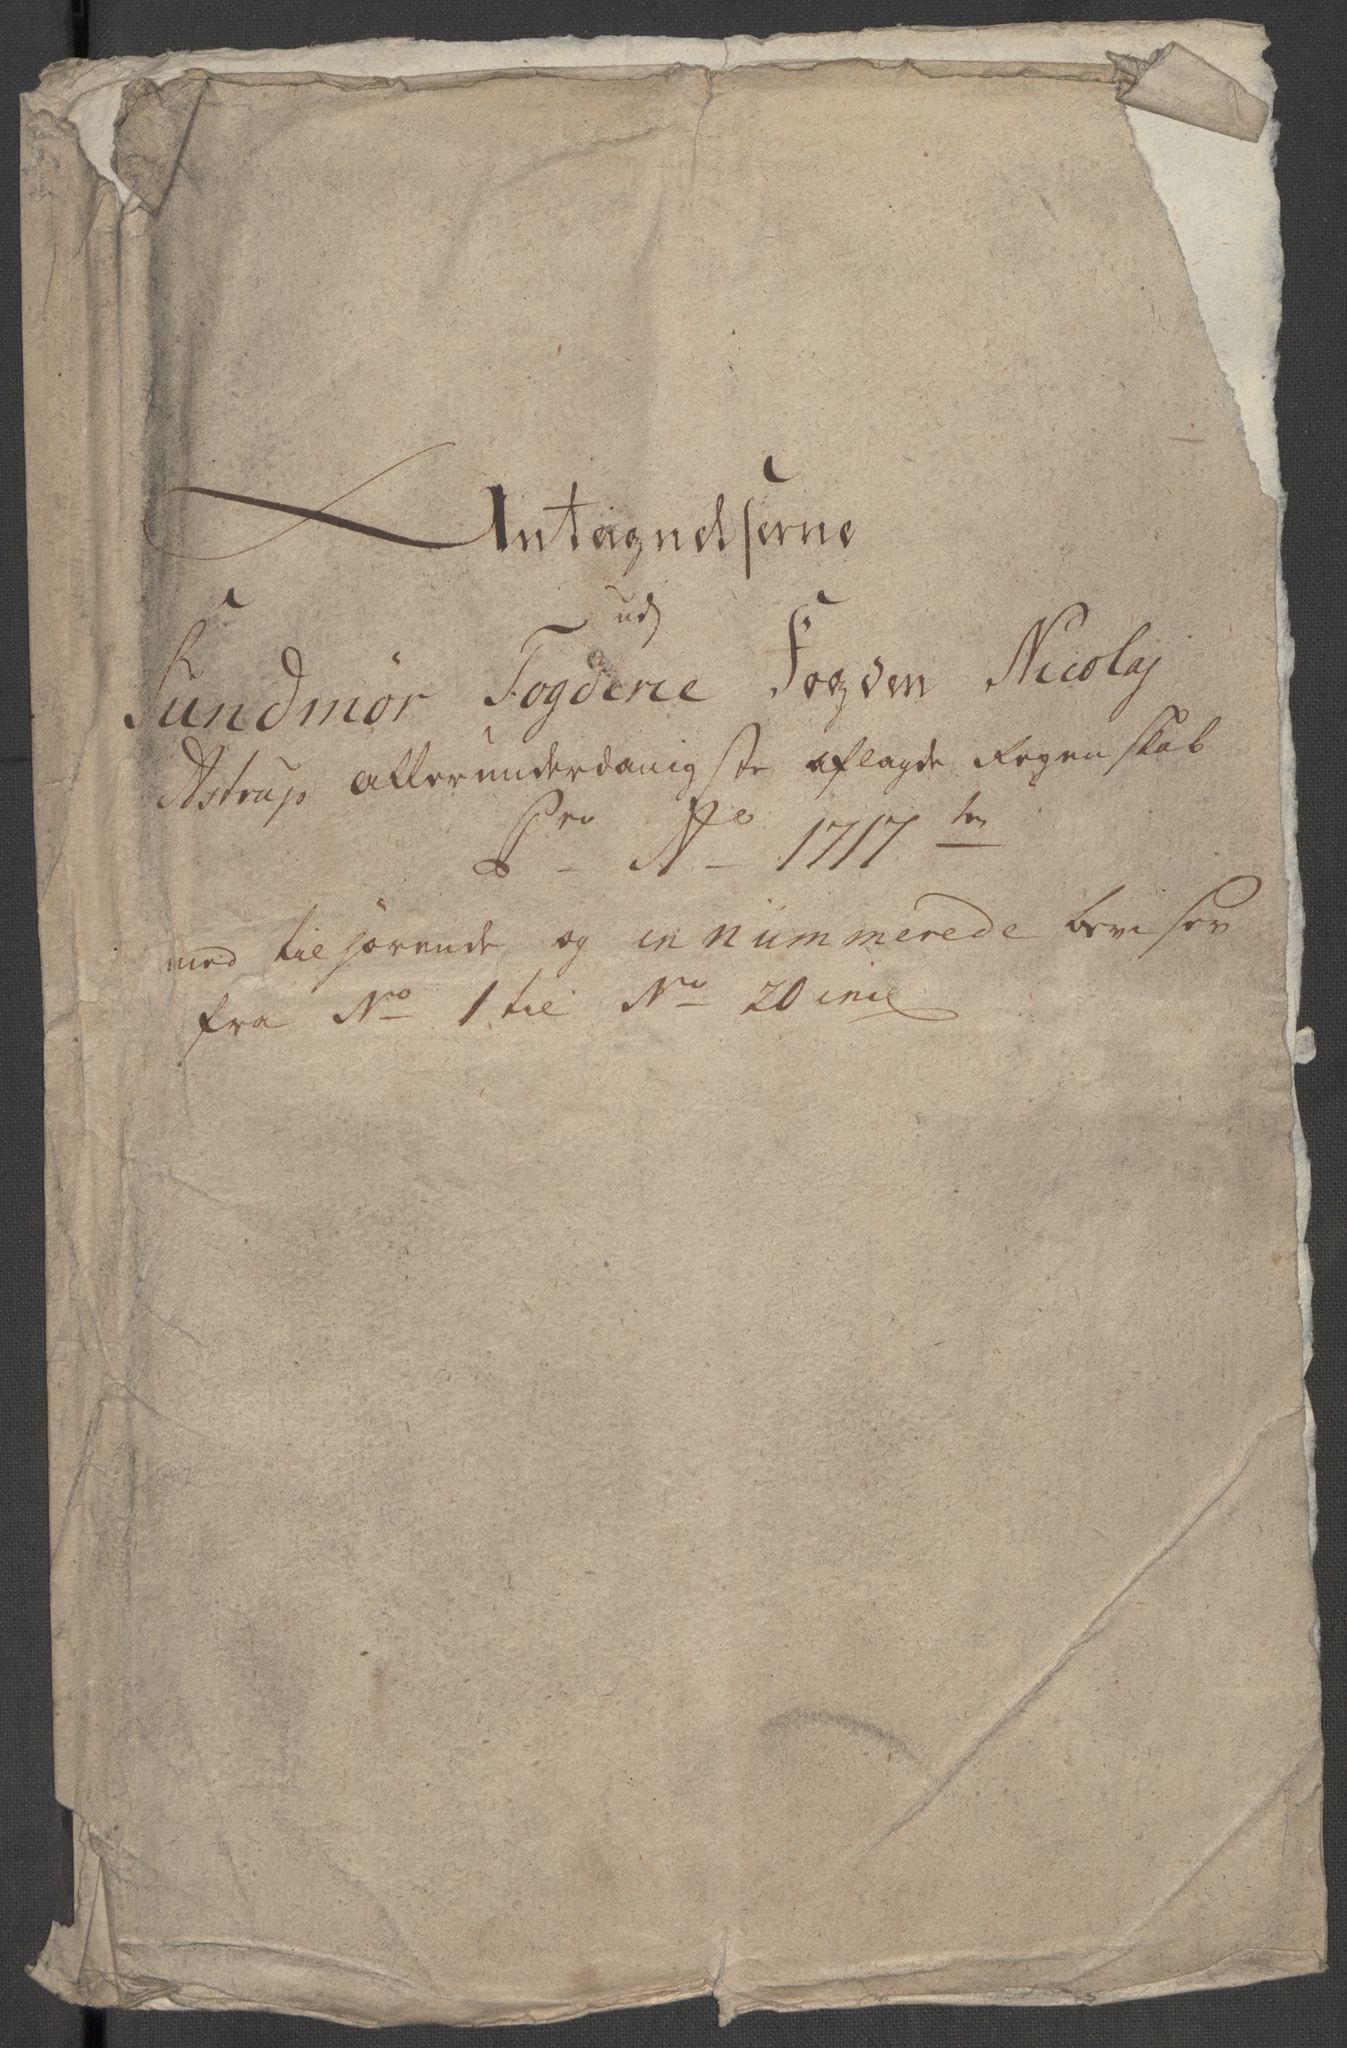 Antegnelserne
udj
Sundmør Fogderie Fogden Nicolaj
Astrup allerunderdanigste aflagde Regenskab
Pro Ao 1717 ten
med tilhørende og innummerede beviser
fra No 1 til No 20 incl